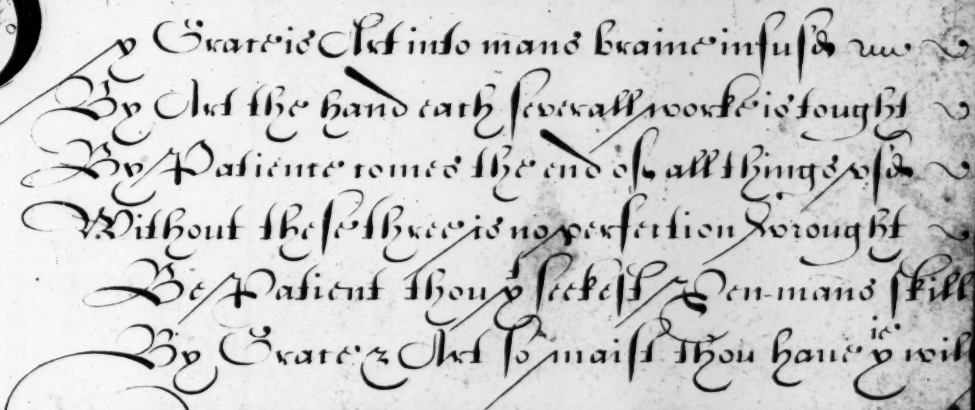 y Grace is Art into mans braine infus'd
By Art the hand each severall worke is tought
By Patience comes the end of all things vs'd
Without these three is no perfection wrought
Be Patient thou yt seekest Pen-mans skill
By Grace & Art so maist thou haue yie will